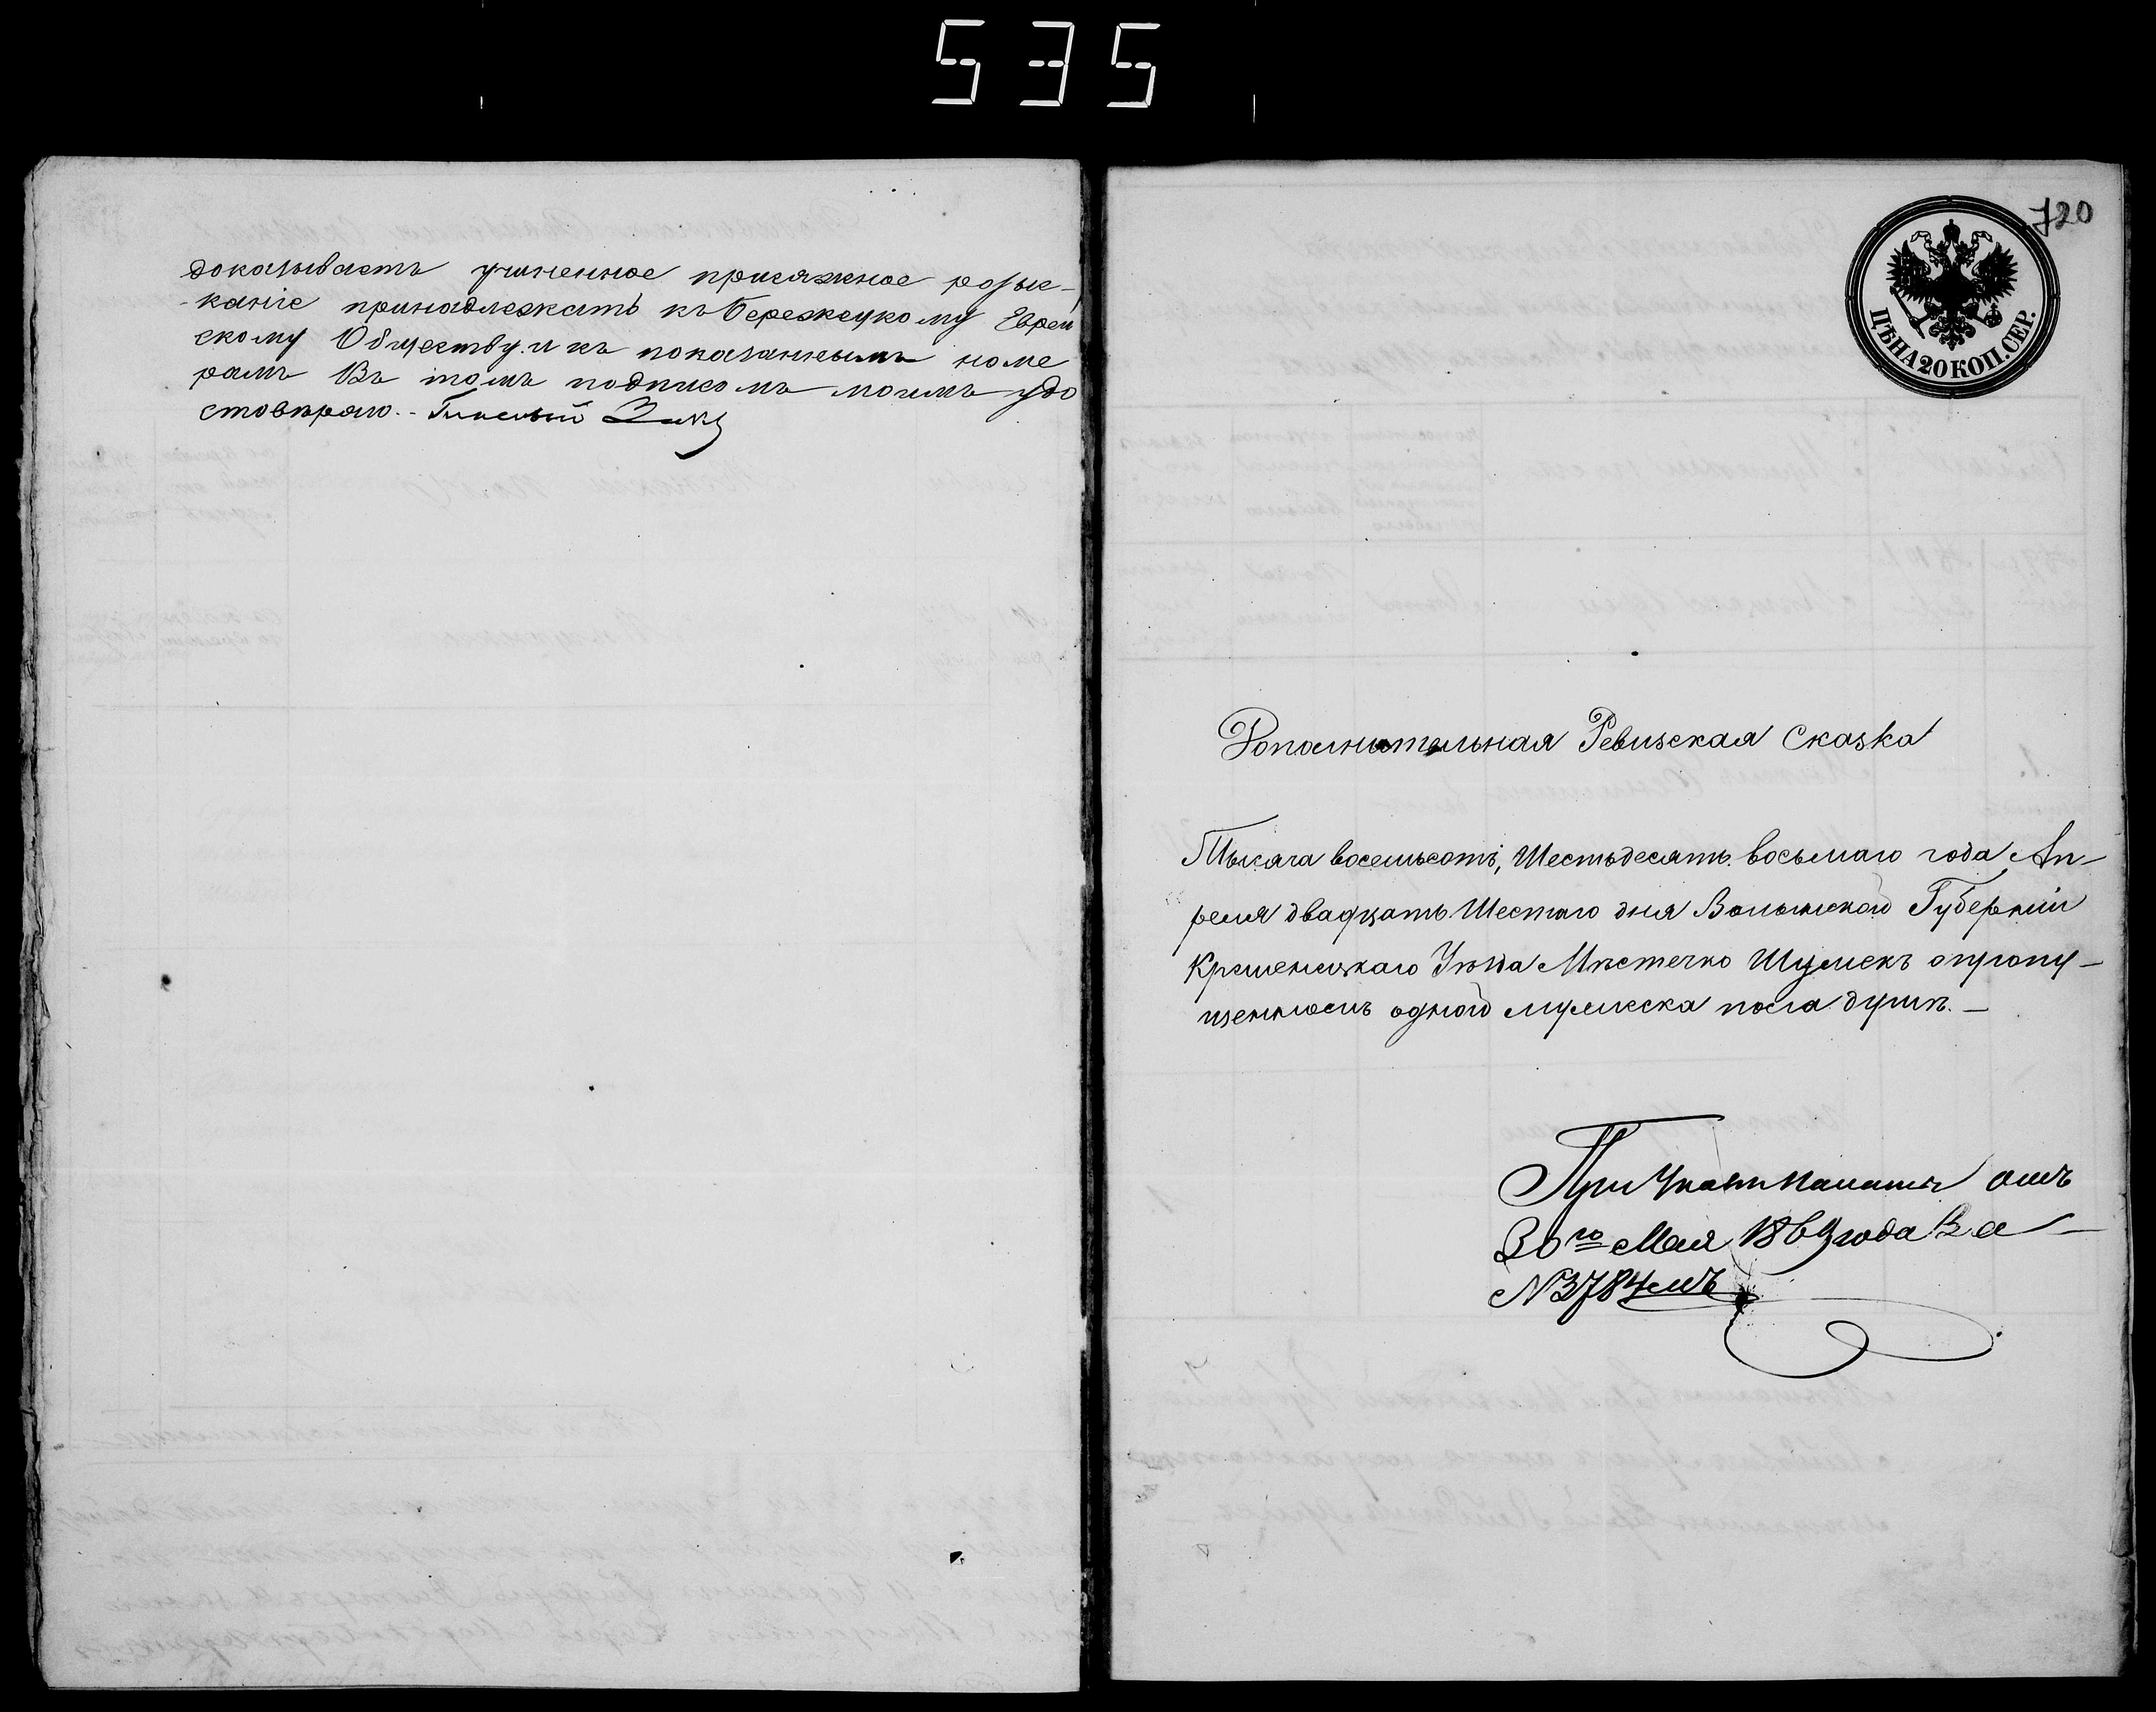 535
доказываетъ учиненное присяжное розыс-
каніе принадлежатъ къ Бережецкому Еврей
скому Обществу и къ показаннымъ номе
рамъ Въ томъ подписомъ моимъ удо
стовѣряю.-
720
ЦѢНА 20 КОП. СЕР.
Дополнительная Ревизская Сказка
Тысяча восемьсотъ, Шестьдесятъ восьмаго года Ап-
реля двадцать Шестаго дня Волынской Губерніи
Кременецкаго Уѣзда Мѣстечко Шумскъ опропу-
щенномъ одной мужеска пола душѣ. —
При Указѣ Палаты отъ
30го Мая 1869 года За
№3784мъ